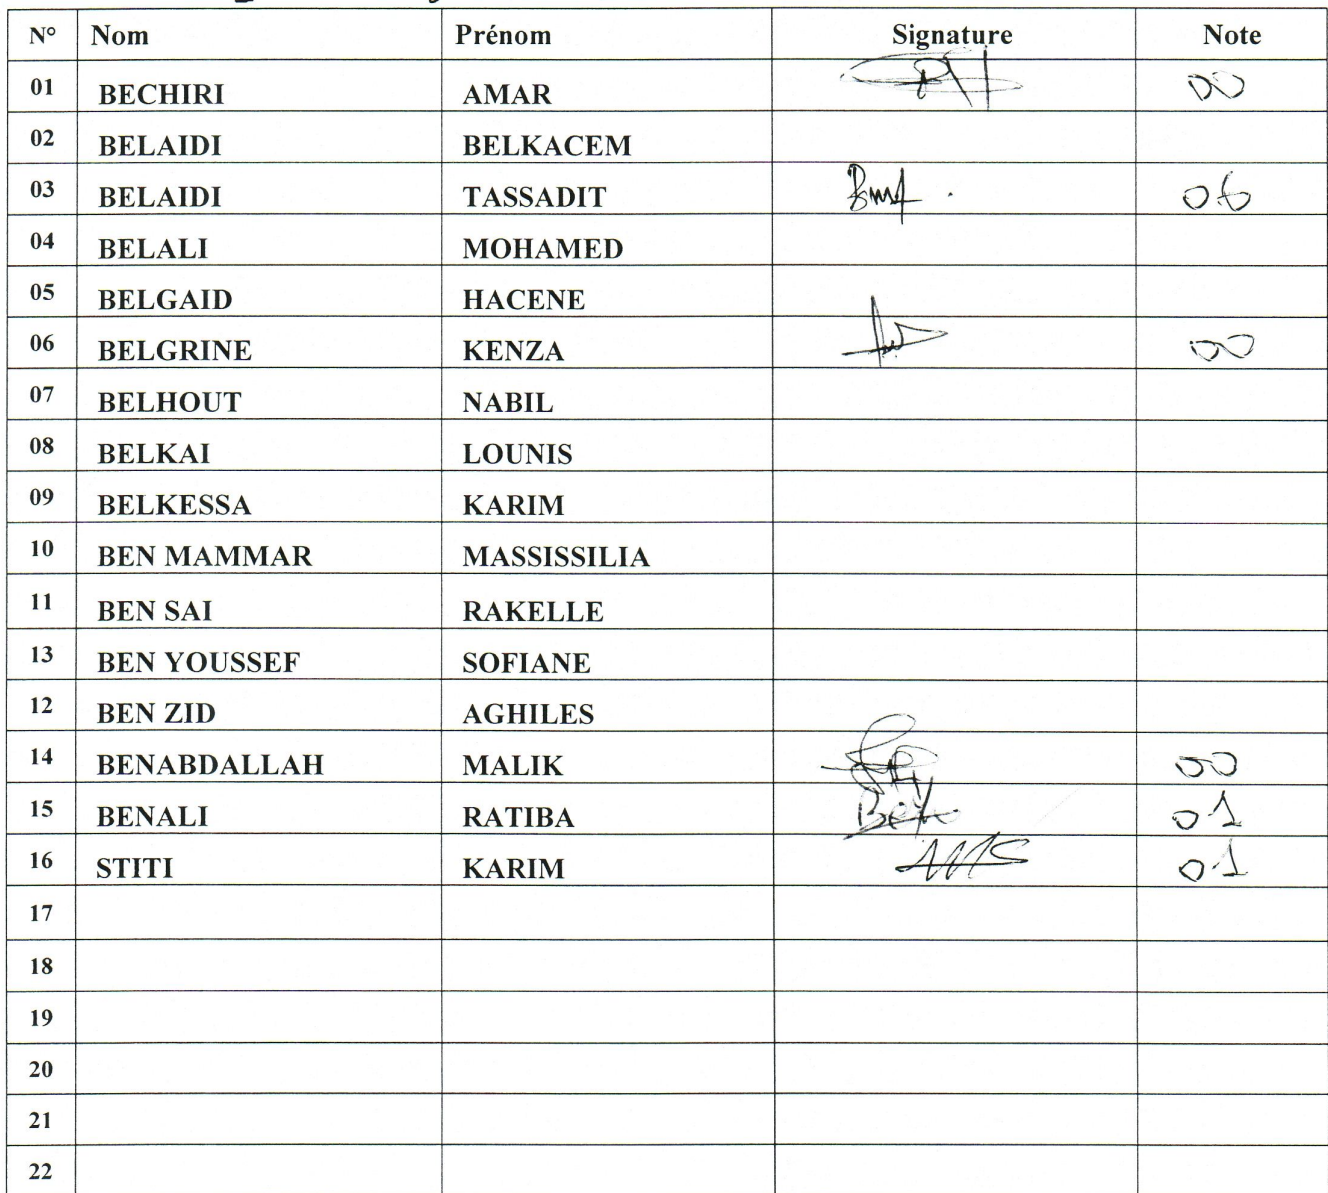 N° Nom Prénom Signature Note
01 BECHIRI AMAR 00
02 BELAIDI BELKACEM
03 BELAIDI TASSADIT 06
04 BELALI MOHAMED
05 BELGAID HACENE
06 BELGRINE KENZA 00
07 BELHOUT NABIL
08 BELKAI LOUNIS
09 BELKESSA KARIM
10 BEN MAMMAR MASSISSILIA
11 BEN SAI RAKELLE
13 BEN YOUSSEF SOFIANE
12 BEN ZID AGHILES
14 BENABDALLAH MALIK 00
15 BENALI RATIBA 01
16 STITI KARIM 01
17
18
19
20
21
22